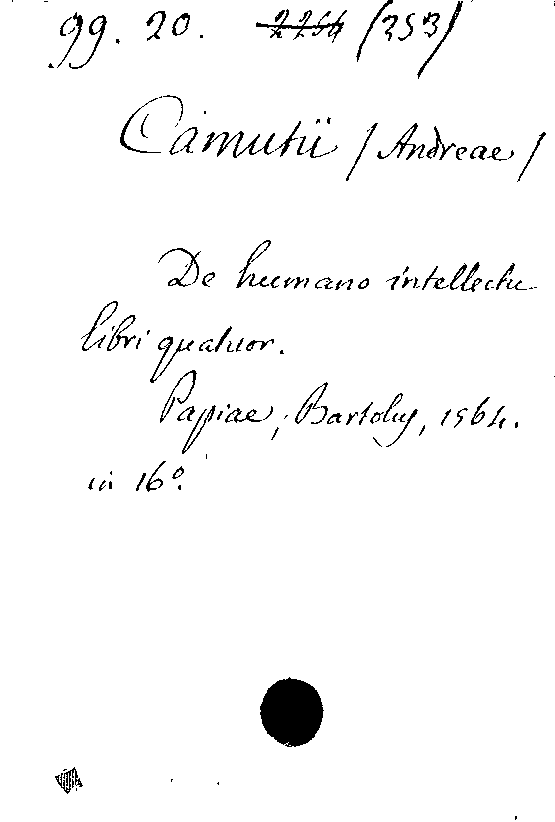 gg. 20. 2264 (353)
Camutii / Andreae /
De humano intellectu
libri quatuor.
Papiae, Bartolus, 1564.
in 16º.